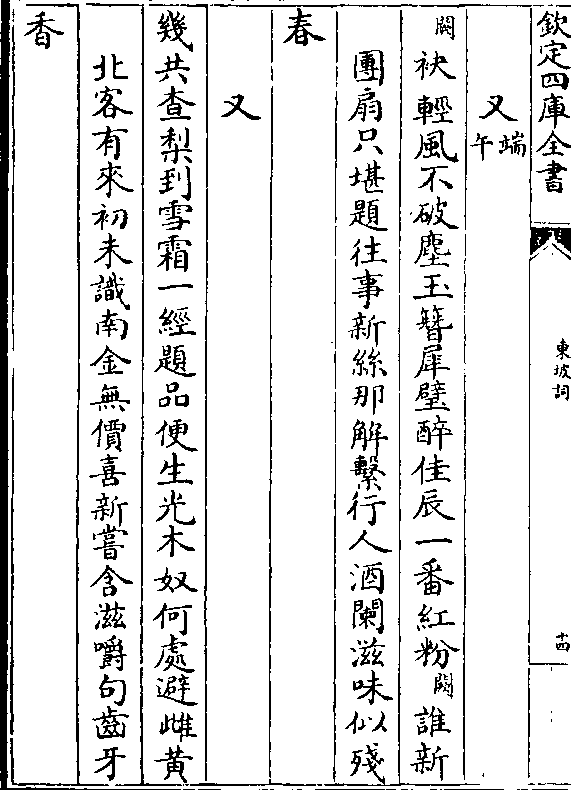 欽定四庫全書
東坡詞
十四
又端午
闕袂輕風不破塵玉簪犀璧醉佳辰一番紅粉闕誰新
團扇只堪題往事新絲那解繫行人酒闌滋味似殘
春
又
幾共查梨到雪霜一經題品便生光木奴何處避雌黃
北客有來初未識南金無價喜新嘗含滋嚼句齒牙
香